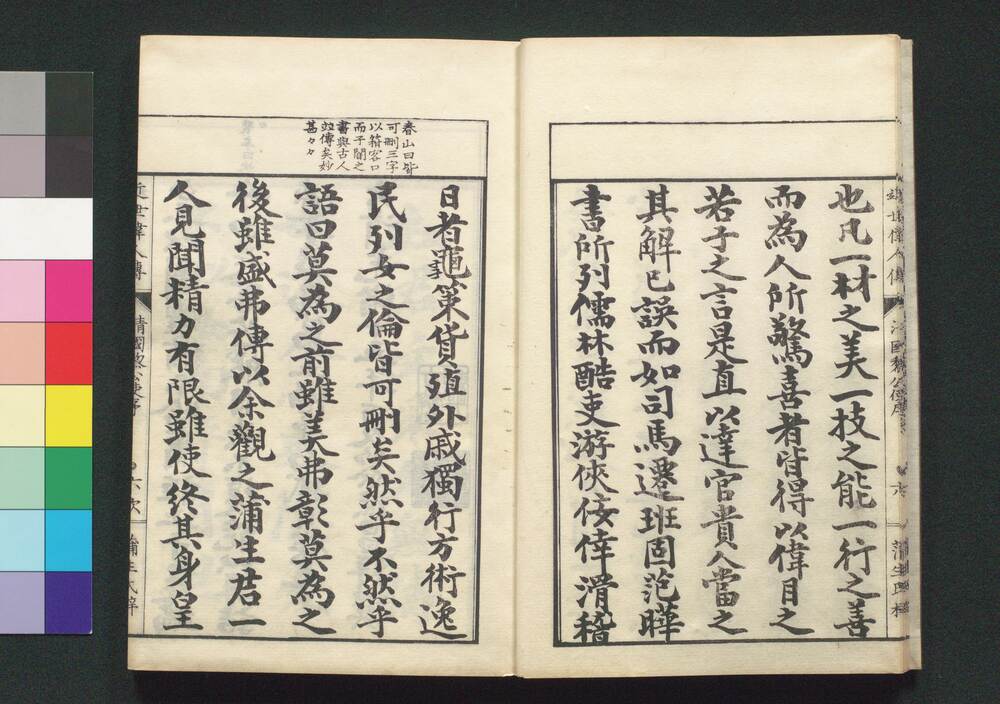 也凡一材之美一技之能一行之善
而為人所驚喜者皆得以偉目之
若子之言是直以達官貴人當之
其解已誤而如司馬遷班固范曄
書所列儒林酷吏游俠佞倖滑稽
春山曰皆
可刪三字
以籍客口
而子闇之
書與古人
竝傳矣妙
甚々々
日者龜策貨殖外戚獨行方術逸
民列女之倫皆可刪矣然乎不然乎
語曰莫為之前雖美弗彰莫為之
後雖盛弗傳以余觀之蒲生君一
人見聞精力有限雖使終其身皇
近世偉人傳
六